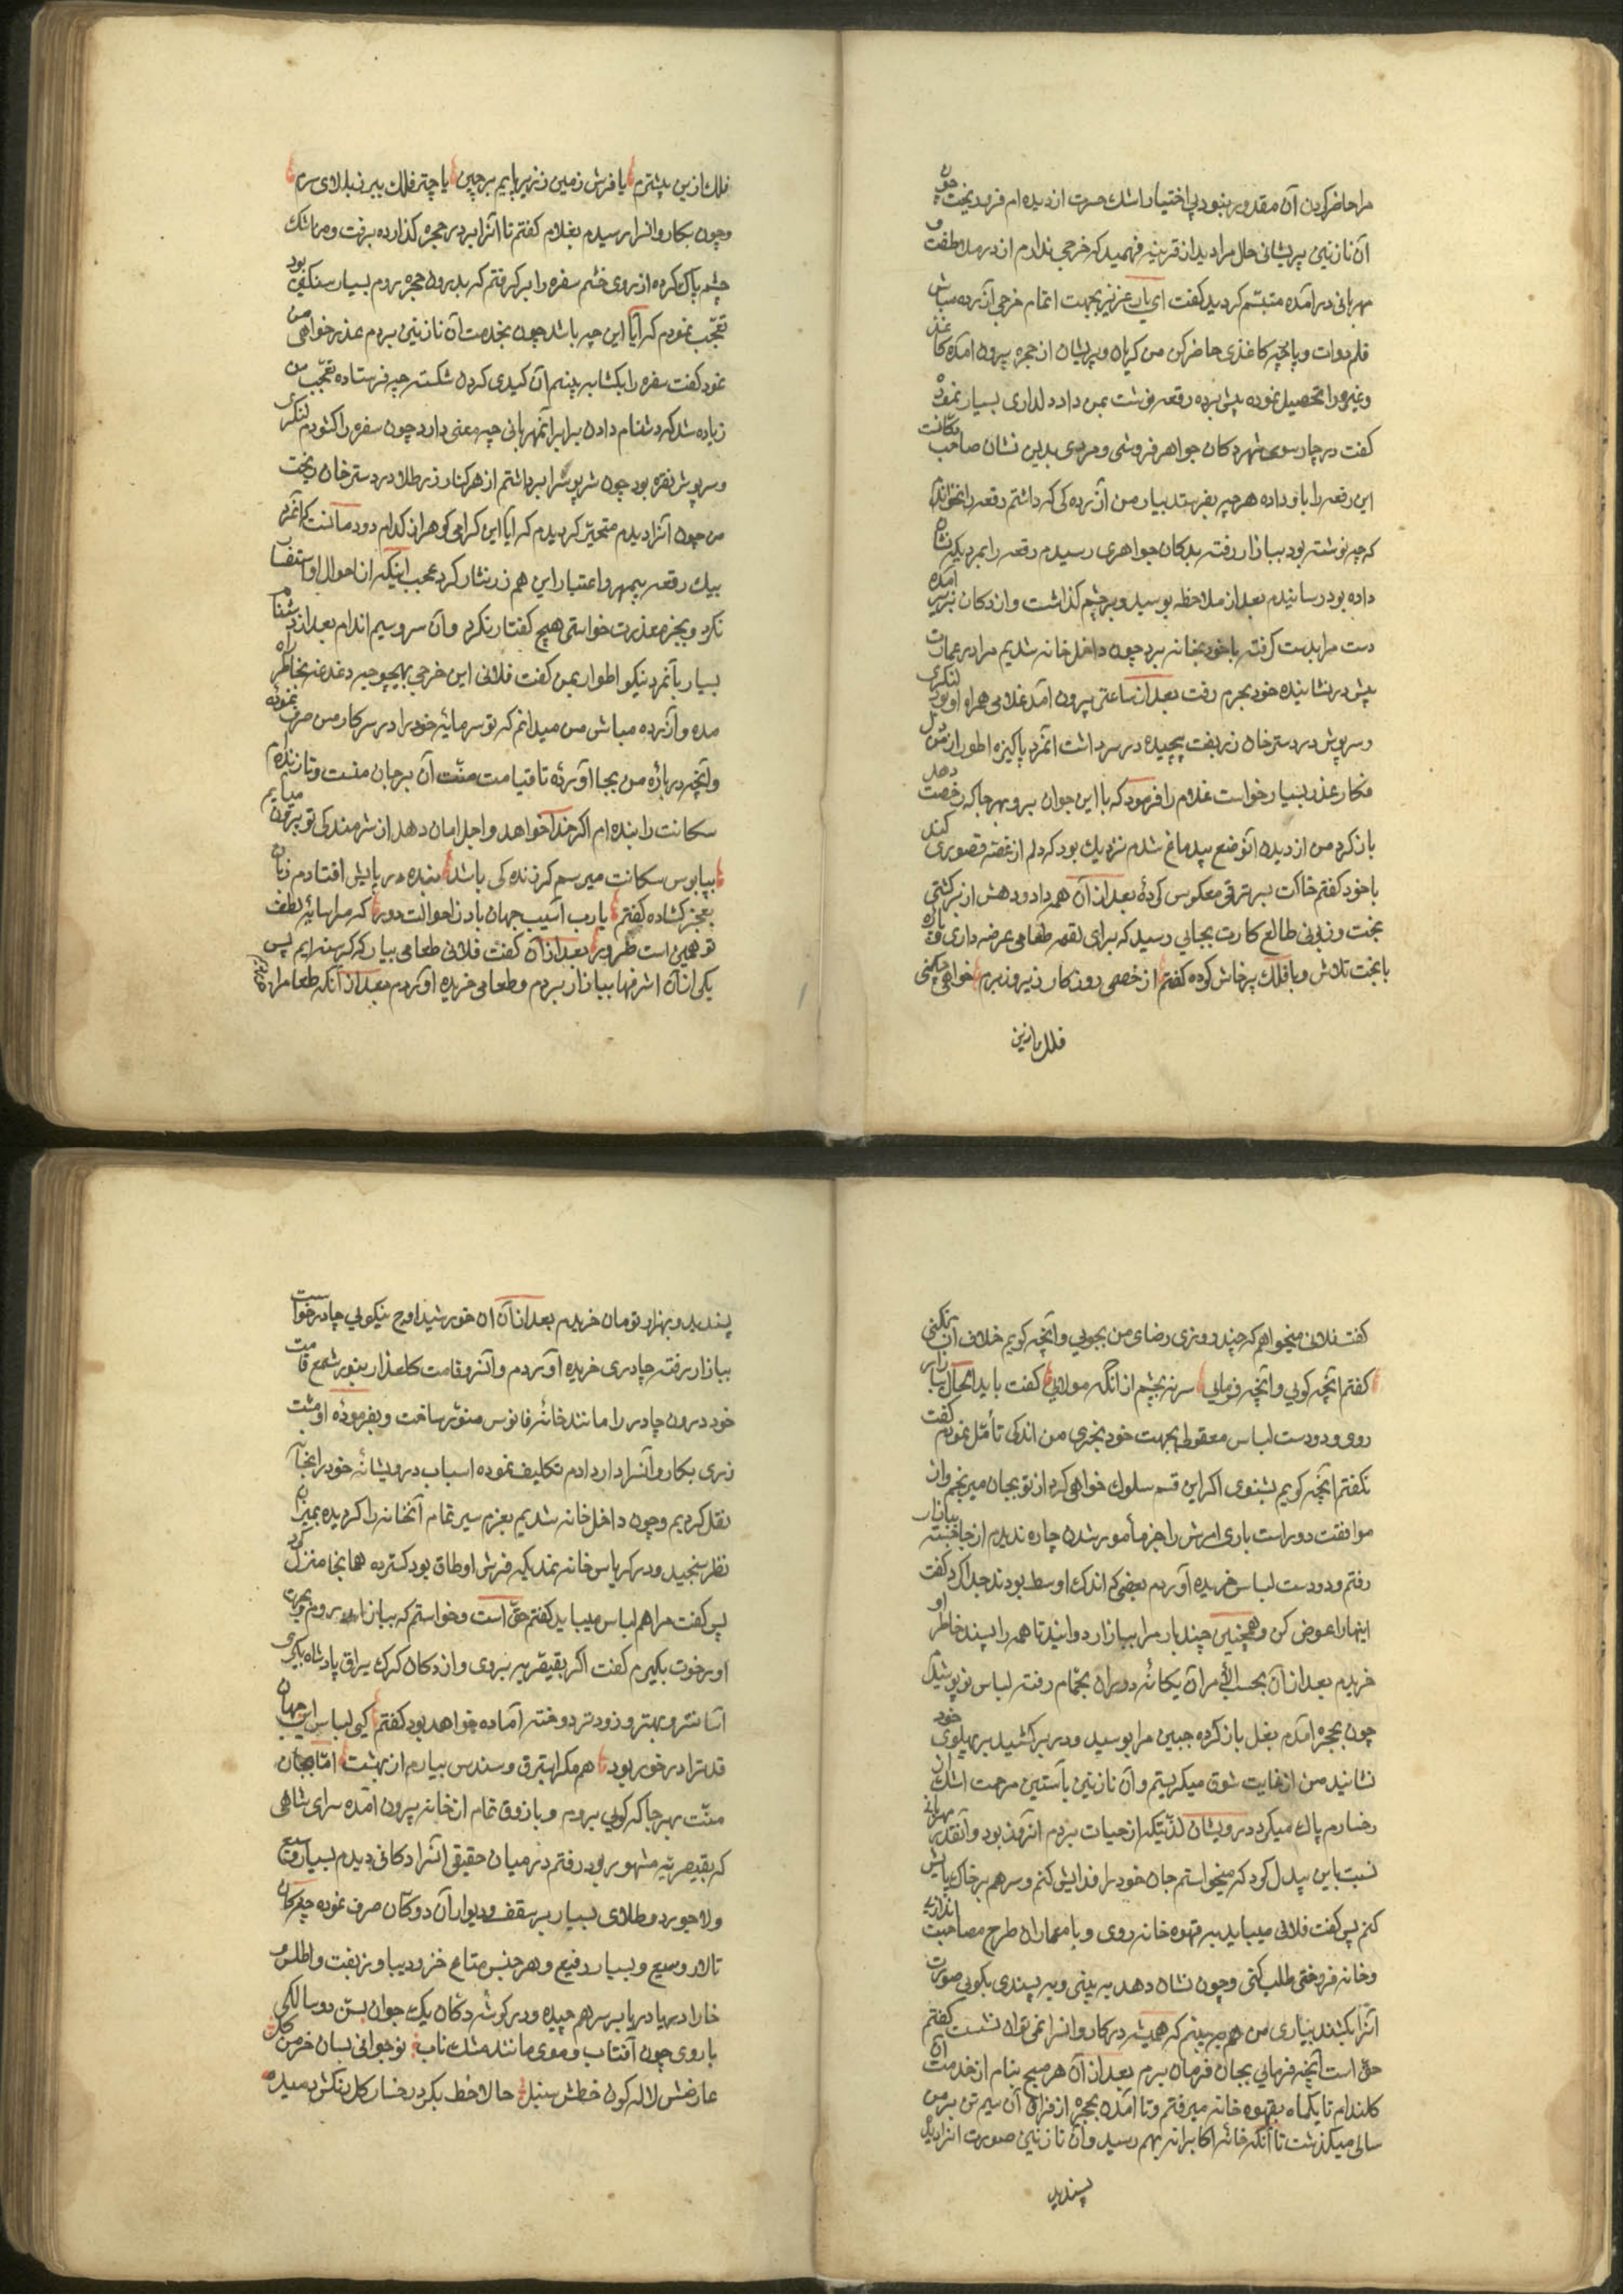 مرا حاضر کردن آن مقدور نبود بی اختیار اشک حسرت از دیده ام فرو ریخت چون
آن نازنین پریشانی حال مرا دید از قرینه فهمید که خرجی ندارم از در ملاطفت و
مهربانی در آمده متبسّم کردید کفت ای یار عزیز بجهت اتمام خرجی آزرده مباش
قلم دوات و پارچه کاغذی حاضر کن من کریان و پریشان از حجره بیرون آمده کاغذ
و غیره را تحصیل نموده پیش برده رقعه نوشت بمن داد دلداری بسیار نموده
کفت در چارسوی شهر دکان جواهر فروشی و مردی بدین نشان صاحب دکانست
این رقعه را باو داده هرچه بفرستد بیار من آزرده کی که داشتم رقعه را نخواندم
که چه نوشته بود ببازار رفته بدکان جواهری رسیدم رقعه را بمردیکه نشان
داده بود رسانیدم بعد از ملاحظه بوسید و بر چشم کذاشت و از دکان بزیر آمده
دست مرا بدست کرفته با خود بخانه برد چون داخل خانه شدیم مرا در عمارت
پیش در نشانیده خود بحرم رفت بعد از ساعتی بیرون آمد غلامی همراه او بود لنکری
و سرپوش در دسترخان زربفت پیچیده در سر داشت آنمرد پاکیزه اطوار از من دل
فکار عذر بسیار خواست غلام را فرمود که با این جوان برو بهر جا که رخصت دهد
باز کرد من از دیدن آنوضع بیدماغ شدم نزدیک بود که دلم از غصّه قصوری کند
با خود کفتم خاکت بسر ترقی معکوس کرده بعد از آن همه داد و دهش از برکشتی
بخت و زبونی طالع کارت بجایی رسید که برای لقمه طعامی عرضه داری قی پاره
با بخت تلاش و با فلک پرخاش کرده کفتم از خصمی روزکار زیر و زبرم خواهی چکنی
فلک ازین
فلک ازین بیشترم یا فرش زمین ز زیر پایم برچین یا چتر فلک بیر ز بالای سرم
و چون بکاروانسرا رسیدم بغلام کفتم تا آنرا بدر حجره کذارده برفت و من اشک
چشم پاک کرده از روی خشم سفره را بر کرفتم که بدرون حجره بروم بسیار سنکین بود
تعجّب نمودم که آیا این چه باشد چون بخدمت آن نازنین بردم عذر خواهی من
نمود کفت سفره را بکشا ببینم آن کیدی کردن شکسته چه فرستاده تعجّب من
زیاده شد که دشنام دادن برابر آنمهربانی چه معنی دارد چون سفره را کشودم لنکری
و سرپوش نقره بود چون سرپوشرا برداشتم از هر کنار زر طلا در دسترخان ریخت
من چون آنرا دیدم متحیّر کردیدم که آیا این کرامی کوهر از کدام دودمانست که آنمرد
بیک رقعه بیمهر و اعتبار این همه زر نثار کرد عجب اینکه از احوال او استفسار
نکرد و بجز معذرت خواستی هیچ کفتار نکرد و آن سرو سیم اندام بعد از دشنام
بسیار بآنمرد نیکو اطوار بمن کفت فلانی این خرجی بهیچوجه دغدغه بخاطر راه
مده و آزرده مباش من میدانم که تو سرمایه خود را در سرکار من صرف نموده
و آنچه در باره من بجا آورده تا قیامت منّت آن بر جان منست و تا زنده ام
سکانت را بنده ام اکر خدا خواهد و اجل امان دهد از شرمندکی تو بیرون میایم
بپابوس سکانت میرسم کر زنده کی باشد بنده در پایش افتادم زبان
بعجز کشاده کفتم یا رب آسیب جهان باد ز احوالت دور که مرا سایه لطف
تو همین است ظرور بعد از آن کفت فلانی طعامی بیار که کرسنه ایم پس
یکی از آن اشرفیها ببازار بردم و طعامی خریده آوردم بعد از آنکه طعام را
کفت فلانی میخواهم که چند روزی رضای من بجویی و آنچه کویم خلاف آن نکنی
کفتم آنچه کویی و آنچه فرمایی سر نپیچم از آنکه مولایی کفت باید الحال ببازار
روی و دو دست لباس معقول بجهت خود بخری من اندکی تأمّل نمودم کفت
نکفتم آنچه کویم بشنوی اکر این قسم سلوک خواهی کرد از تو بجان میرنجم و از
موافقت دور است باری امرش را جز مأمور شدن چاره ندیدم از جا جسته ببازار
رفتم و دو دست لباس خریده آوردم بعضی که اندک اوسط بودند جدا کرد کفت
اینها را عوض کن و همچنین چند بار مرا ببازار دوانید تا همه را پسند خاطر او
خریدم بعد از آن بحسب الأمر آن یکانه دوران بحمّام رفته لباس نو پوشیدم
چون بحجره آمدم بغل باز کرده جبین مرا بوسید و در بر کشید بر پهلوی خود
نشانید من از غایت شوق میکریستم و آن نازنین بآستین مرحمت اشک از
رخسارم پاک میکرد درویشان لذّتیکه از حیات بردم آنروز بود و آنقدر مهربانی
نسبت باین بیدل کرد که میخواستم جان خود را فدایش کنم و سر هم بر خاک پایش
کنم پس کفت فلانی میباید به قهوه خانه روی و با معماران طرح مصاحبت اندازی
و خانه فروختی طلب کنی و چون نشان دهد به بینی و به پسندی بکویی صورت
آنرا بکشند بیاری من هم به بینم که همیشه در کاروانسرا نمی توان نشست کفتم
حقّ است آنچه فرمایی بجان فرمان برم بعد از آن هر صبح بناء از خدمت آن
کلندام تا یکماه بقهوه خانه میرفتم و تا آمدن بحجره از فراق آن سیم تن بر من
سالی میکذشت تا آنکه خانه اکابرانه بهم رسید و آن نازنین صورت آنرا دید
پسندید
پسندید و بهزار تومان خریدم بعد از آن آن خورشید اوج نیکویی چادر خواست
ببازار رفته چادری خریده آوردم و آنسرو قامت کلعذار بنور شمع قامت
خود درون چادر را مانند خانه فانوس منوّر ساخت و بفرموده او مشت
زری بکاروانسرادار دادم تکلیف نموده اسباب درویشانه خود را بخانه
نقل کردیم و چون داخل خانه شدیم بعزم سیر تمام آنخانه را کردیده بمیزان
نظر سنجید و در کریاس خانه نمدیکه فرش اوطاق بود کسترده همانجا منزل کرد
پس کفت مرا هم لباس میباید کفتم حقّ است و خواستم که ببازار بروم و بجهت
او رخوت بکیرم کفت اکر بقیصریه بروی و از دکان کرک یراق پادشاه بکیری
آسانتر و بهتر و زودتر دوخته آماده خواهد بود کفتم کی لباس این جهان
قد ترا در خور بود هم مکر استبرق و سندس بیارم از بهشت امّا بجان
منّت بهر جا که کویی بروم و با ذوق تمام از خانه بیرون آمده سرای شاهی
که بقیصریّه مشهور بود رفتم در میان حقیقی آنرا دکانی دیدم بسیار وسیع
و لاجورد و طلای بسیار بر سقف و دیوار آن دوکان صرف نموده چهره کان
تالار وسیع و بسیار رفیع و هر جنس متاع خز و دیبا و زربفت و اطلس و
خارا دریا دریا بر سر هم چیده و در کوشه دکان یک جوان بسنّ دو سالکی
با روی چون آفتاب و موی مانند مشک ناب نوجوانی بسان خرمن کل
عارضش لاله کون خطش سنبل حالا خط بکرد رخسار کل رنکش دمیده